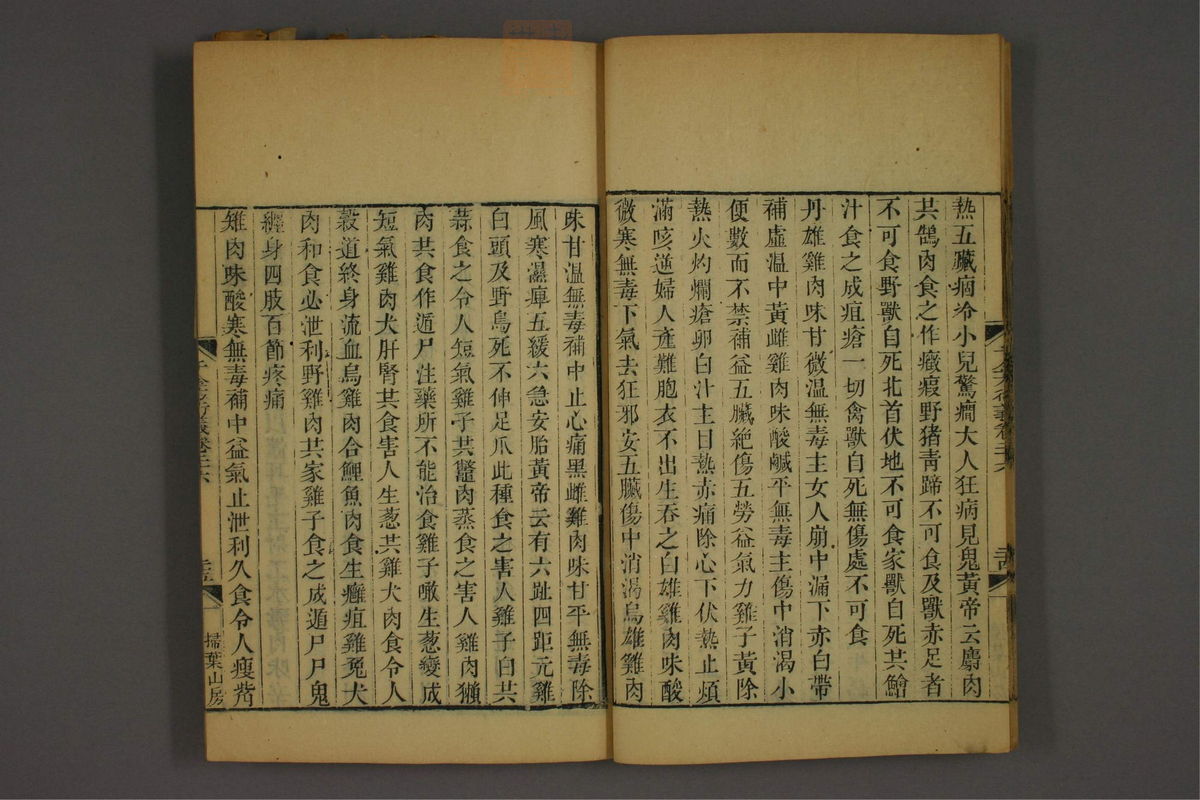 熱五臟痼冷小兒驚癎大人狂病見鬼黃帝云麝肉
共鵠肉食之作癥瘕野猪靑蹄不可食及獸赤足者
不可食野獸自死北首伏地不可食家獸自死共鱠
汁食之成疽瘡一切禽獸自死無傷處不可食
丹雄雞肉味甘微溫無毒主女人崩中漏下赤白帶
補虛溫中黃雌雞肉味酸鹹平無毒主傷中消渴小
便數而不禁補益五臟絶傷五勞益氣力雞子黃除
熱火灼爛瘡卵白汁主目熱赤痛除心下伏熱止煩
滿咳逆婦人產難胞衣不出生吞之白雄雞肉味酸
微寒無毒下氣去狂邪安五臟傷中消渴烏雄雞肉
味甘溫無毒補中止心痛黑雌雞肉味甘平無毒除
風寒濕痺五緩六急安胎黃帝云有六趾四距元雞
白頭及野鳥死不伸足爪此種食之害人雞子白共
蒜食之令人短氣雞子共鼈肉蒸食之害人雞肉獺
肉共食作遁尸注藥所不能治食雞子噉生葱變成
短氣雞肉犬肝腎共食害人生葱共雞犬肉食令人
穀道終身流血烏雞肉合鯉魚肉食生癰疽雞兔犬
肉和食必泄利野雞肉共家雞子食之成遁尸尸鬼
纏身四肢百節疼痛
雉肉味酸寒無毒補中益氣止泄利久食令人瘦嵴
千金方衍義卷二十六
掃葉山房